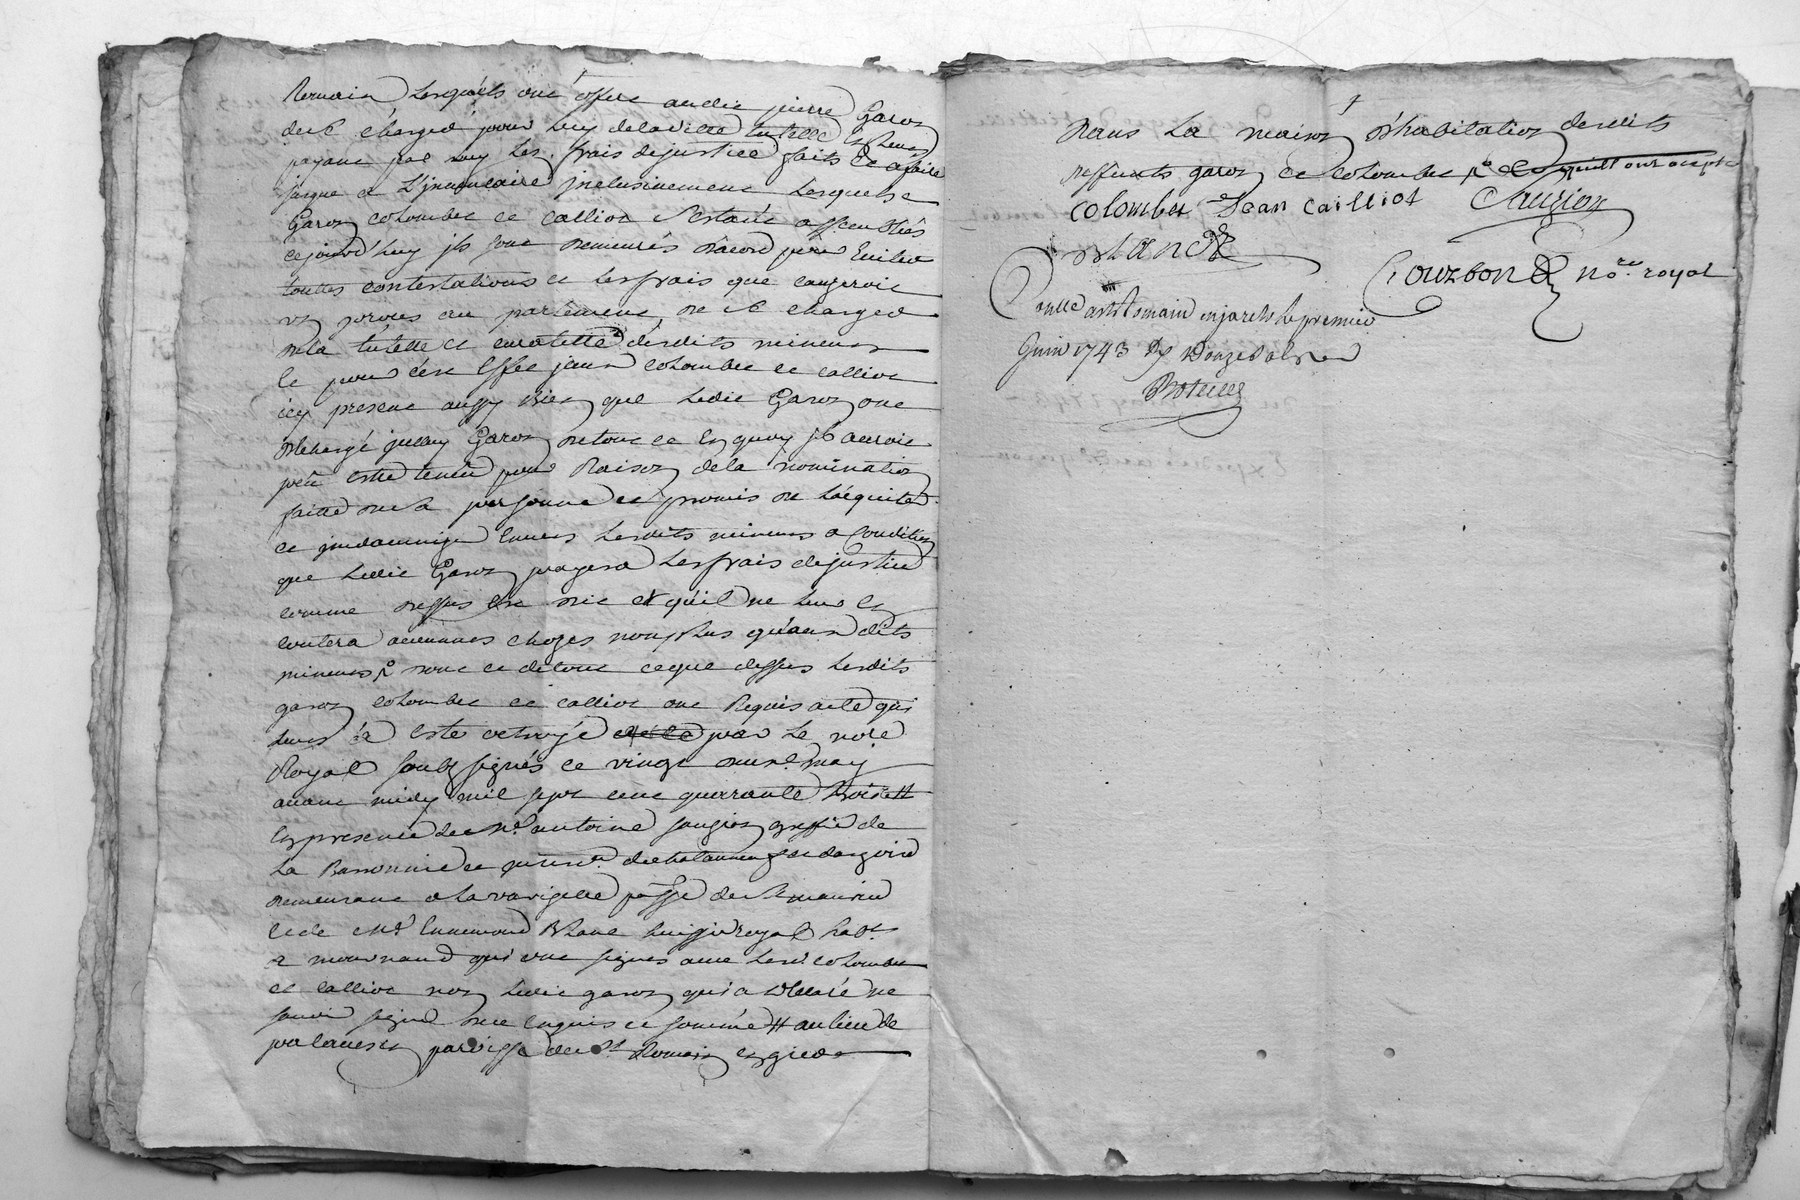 Romain Lesquels ont offert audit pierre Garon
de se chargé pour luy de laditte tutelle en leurs
payant par luy Les frais de justice faits et a faire
jusque a L'jnvantaire jnclusivement Lesquels
Garon colombet et calliot s'estant assemblés
cejourd'huy jls sont demeurés d'acord pour Eviter
touttes contestations et les frais que causeroit
un proces au parlement, de se chargé
de la tutelle et curatelle desdits mineurs
Et pour cest Effet jceux colombet et calliot
icy present aussy bien que Ledit Garon ont
dechargé jceluy Garon de tout ce En quoy jl auroit
peu estre tenu pour Raison de la nomination
faitte de sa personne et promis de L'acquiter
et jndamniser Envers Lesdits mineurs a Condition
que Ledit Garon payera Les frais de justice
comme dessus Est dit et qu'il ne leur En
coutera aucunnes chozes non plus qu'aux dits
mineurs, dont et de tout ce que dessus Lesdits
garon colombet et calliot ont Requis acte qui
leurs a Esté octroyé par Le no.re
Royal soubzsignés ce vingt may
avant midy mil sept cent quarrante trois
En presence de M.e antoine saugion greffier de
La Baronnie et de dargoire
demeurant a La varizelle par.sse de St maurice
et de M.e Ennemond Blanc huissier royal hab.t
a mournand qui ont signes avec Led. colombet
et calliot non Ledit garon qui a declaré ne
savoir signer de ce Enquis et sommé # au lieu de
paroisse de St Romain En gier
Dans La maison d'habitation desdits
garon et colombet
colombet Jean Cailliot Saugion
Blanc
Courbon no.re royal
Controllé a St Romain en jarets le premier
Juin 1743 R douze sols